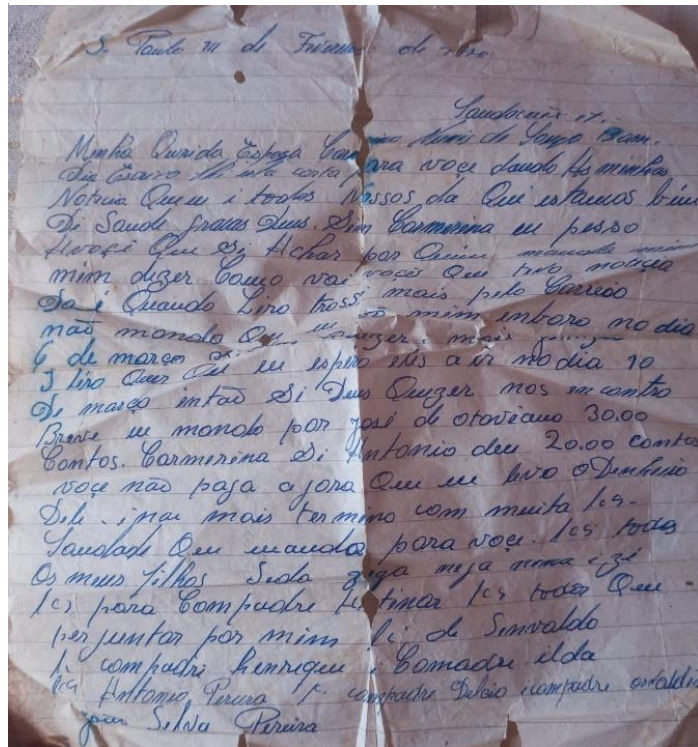 S. Paulo de de
Saudações
Minha Querida Espoza Nunis de Souza
Dia Escrevo esta carta para voçe dando As minhas
Noticia Que eu i todos Nossos da Qui estamos bem
Di Saude graças Deus. Sim Carmerina eu pesso
Avoçe Que si Achar por Quem manda
mim dizer Como vai voçes Que tivo noticia
Da i Quando Liro trossi mais pelo Correio
não manda Que eu mim inboro no dia
6 de março
I Liro Quer Qui eu espero eles a ir no dia 10
De março intão Si Deus Quizer nos encontro
Breve eu mando por josé de otoviano 30.00
Contos. Carmerina Si Antonio deu 20.00 contos
voçe não paga agora Que eu levo o Dinheiro
Dele. mais termino com muita
Saudade Que mando para voçe. todos
Os meus filhos neja nena i zé
para Compadre todos Que
perjuntar por mim de Sinvaldo
compadre henrique i Comadre ilda
Antonio Pereira compadre Delcio i compadre
Silva Pereira